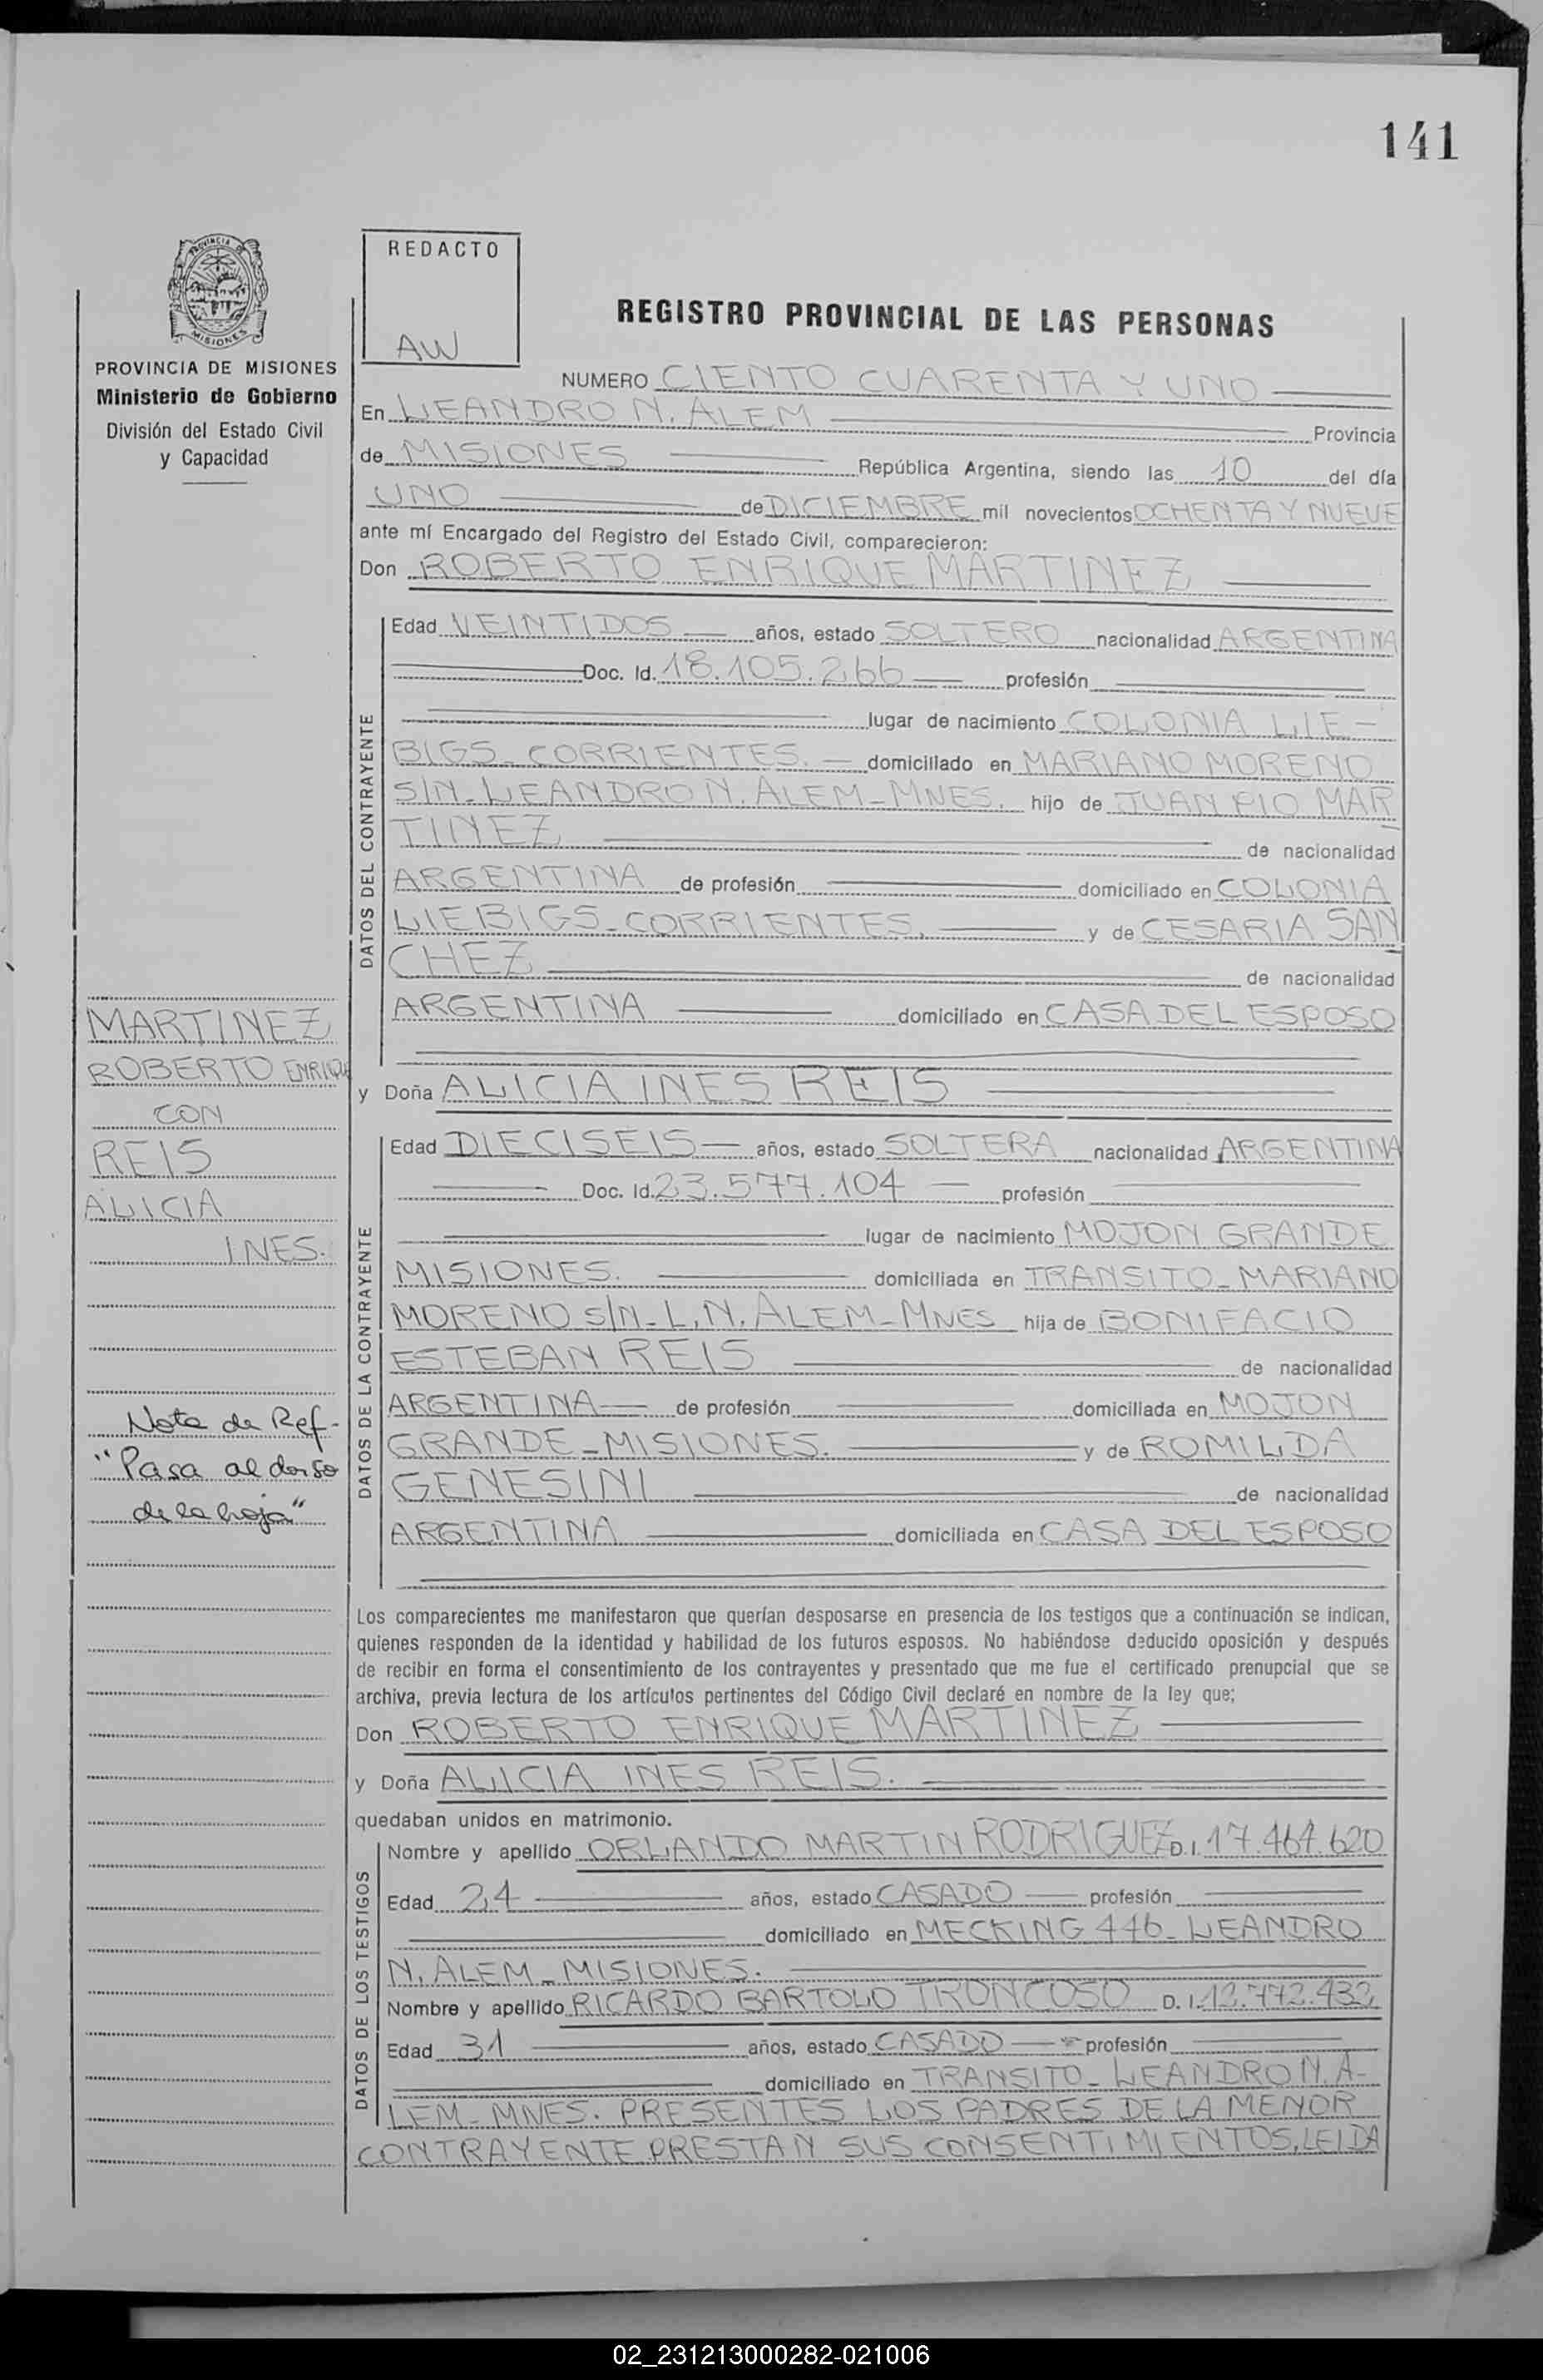 141
PROVINCIA DE MISIONES
REDACTO
AW
PROVINCIA DE MISIONES
Ministerio de Gobierno
División del Estado Civil
y Capacidad
REGISTRO PROVINCIAL DE LAS PERSONAS
NUMERO CIENTO CUARENTA Y UNO
En LEANDRO N. ALEM Provincia
de MISIONES República Argentina, siendo las 10 del día
UNO de DICIEMBRE mil novecientos OCHENTA Y NUEVE
ante mí Encargado del Registro del Estado Civil, comparecieron:
Don ROBERTO ENRIQUE MARTINEZ
DATOS DEL CONTRAYENTE
Edad VEINTIDOS años, estado SOLTERO nacionalidad ARGENTINA
Doc. Id. 18.105.266 profesión
lugar de nacimiento COLONIA LIE-
BIGS-CORRIENTES. domiciliado en MARIANO MORENO
S/N-LEANDRO N. ALEM-MNES. hijo de JUAN PIO MAR
TINEZ de nacionalidad
ARGENTINA de profesión domiciliado en COLONIA
LIEBIGS-CORRIENTES. y de CESARIA SAN
CHEZ de nacionalidad
ARGENTINA domiciliado en CASA DEL ESPOSO
y Doña ALICIA INES REIS
DATOS DE LA CONTRAYENTE
Edad DIECISEIS años, estado SOLTERA nacionalidad ARGENTINA
Doc. Id. 23.577.104 profesión
lugar de nacimiento MOJON GRANDE
MISIONES. domiciliada en TRANSITO-MARIANO
MORENO S/N-L.N. ALEM-MNES hija de BONIFACIO
ESTEBAN REIS de nacionalidad
ARGENTINA de profesión domiciliada en MOJON
GRANDE-MISIONES. y de ROMILDA
GENESINI de nacionalidad
ARGENTINA domiciliada en CASA DEL ESPOSO
MARTINEZ
ROBERTO ENRIQUE
CON
REIS
ALICIA
INES.
Nota de Ref-
"Pasa al dorso
de la hoja"
Los comparecientes me manifestaron que querían desposarse en presencia de los testigos que a continuación se indican,
quienes responden de la identidad y habilidad de los futuros esposos. No habiéndose deducido oposición y después
de recibir en forma el consentimiento de los contrayentes y presentado que me fue el certificado prenupcial que se
archiva, previa lectura de los artículos pertinentes del Código Civil declaré en nombre de la ley que;
Don ROBERTO ENRIQUE MARTINEZ
y Doña ALICIA INES REIS.
quedaban unidos en matrimonio.
DATOS DE LOS TESTIGOS
Nombre y apellido ORLANDO MARTIN RODRIGUEZ D.I. 17.464.620
Edad 24 años, estado CASADO profesión
domiciliado en MECKING 446-LEANDRO
N. ALEM-MISIONES.
Nombre y apellido RICARDO BARTOLO TRONCOSO D.I. 12.772.432
Edad 31 años, estado CASADO profesión
domiciliado en TRANSITO-LEANDRO N. A-
LEM-MNES. PRESENTES LOS PADRES DE LA MENOR
CONTRAYENTE PRESTAN SUS CONSENTIMIENTOS, LEIDA
02_231213000282-021006